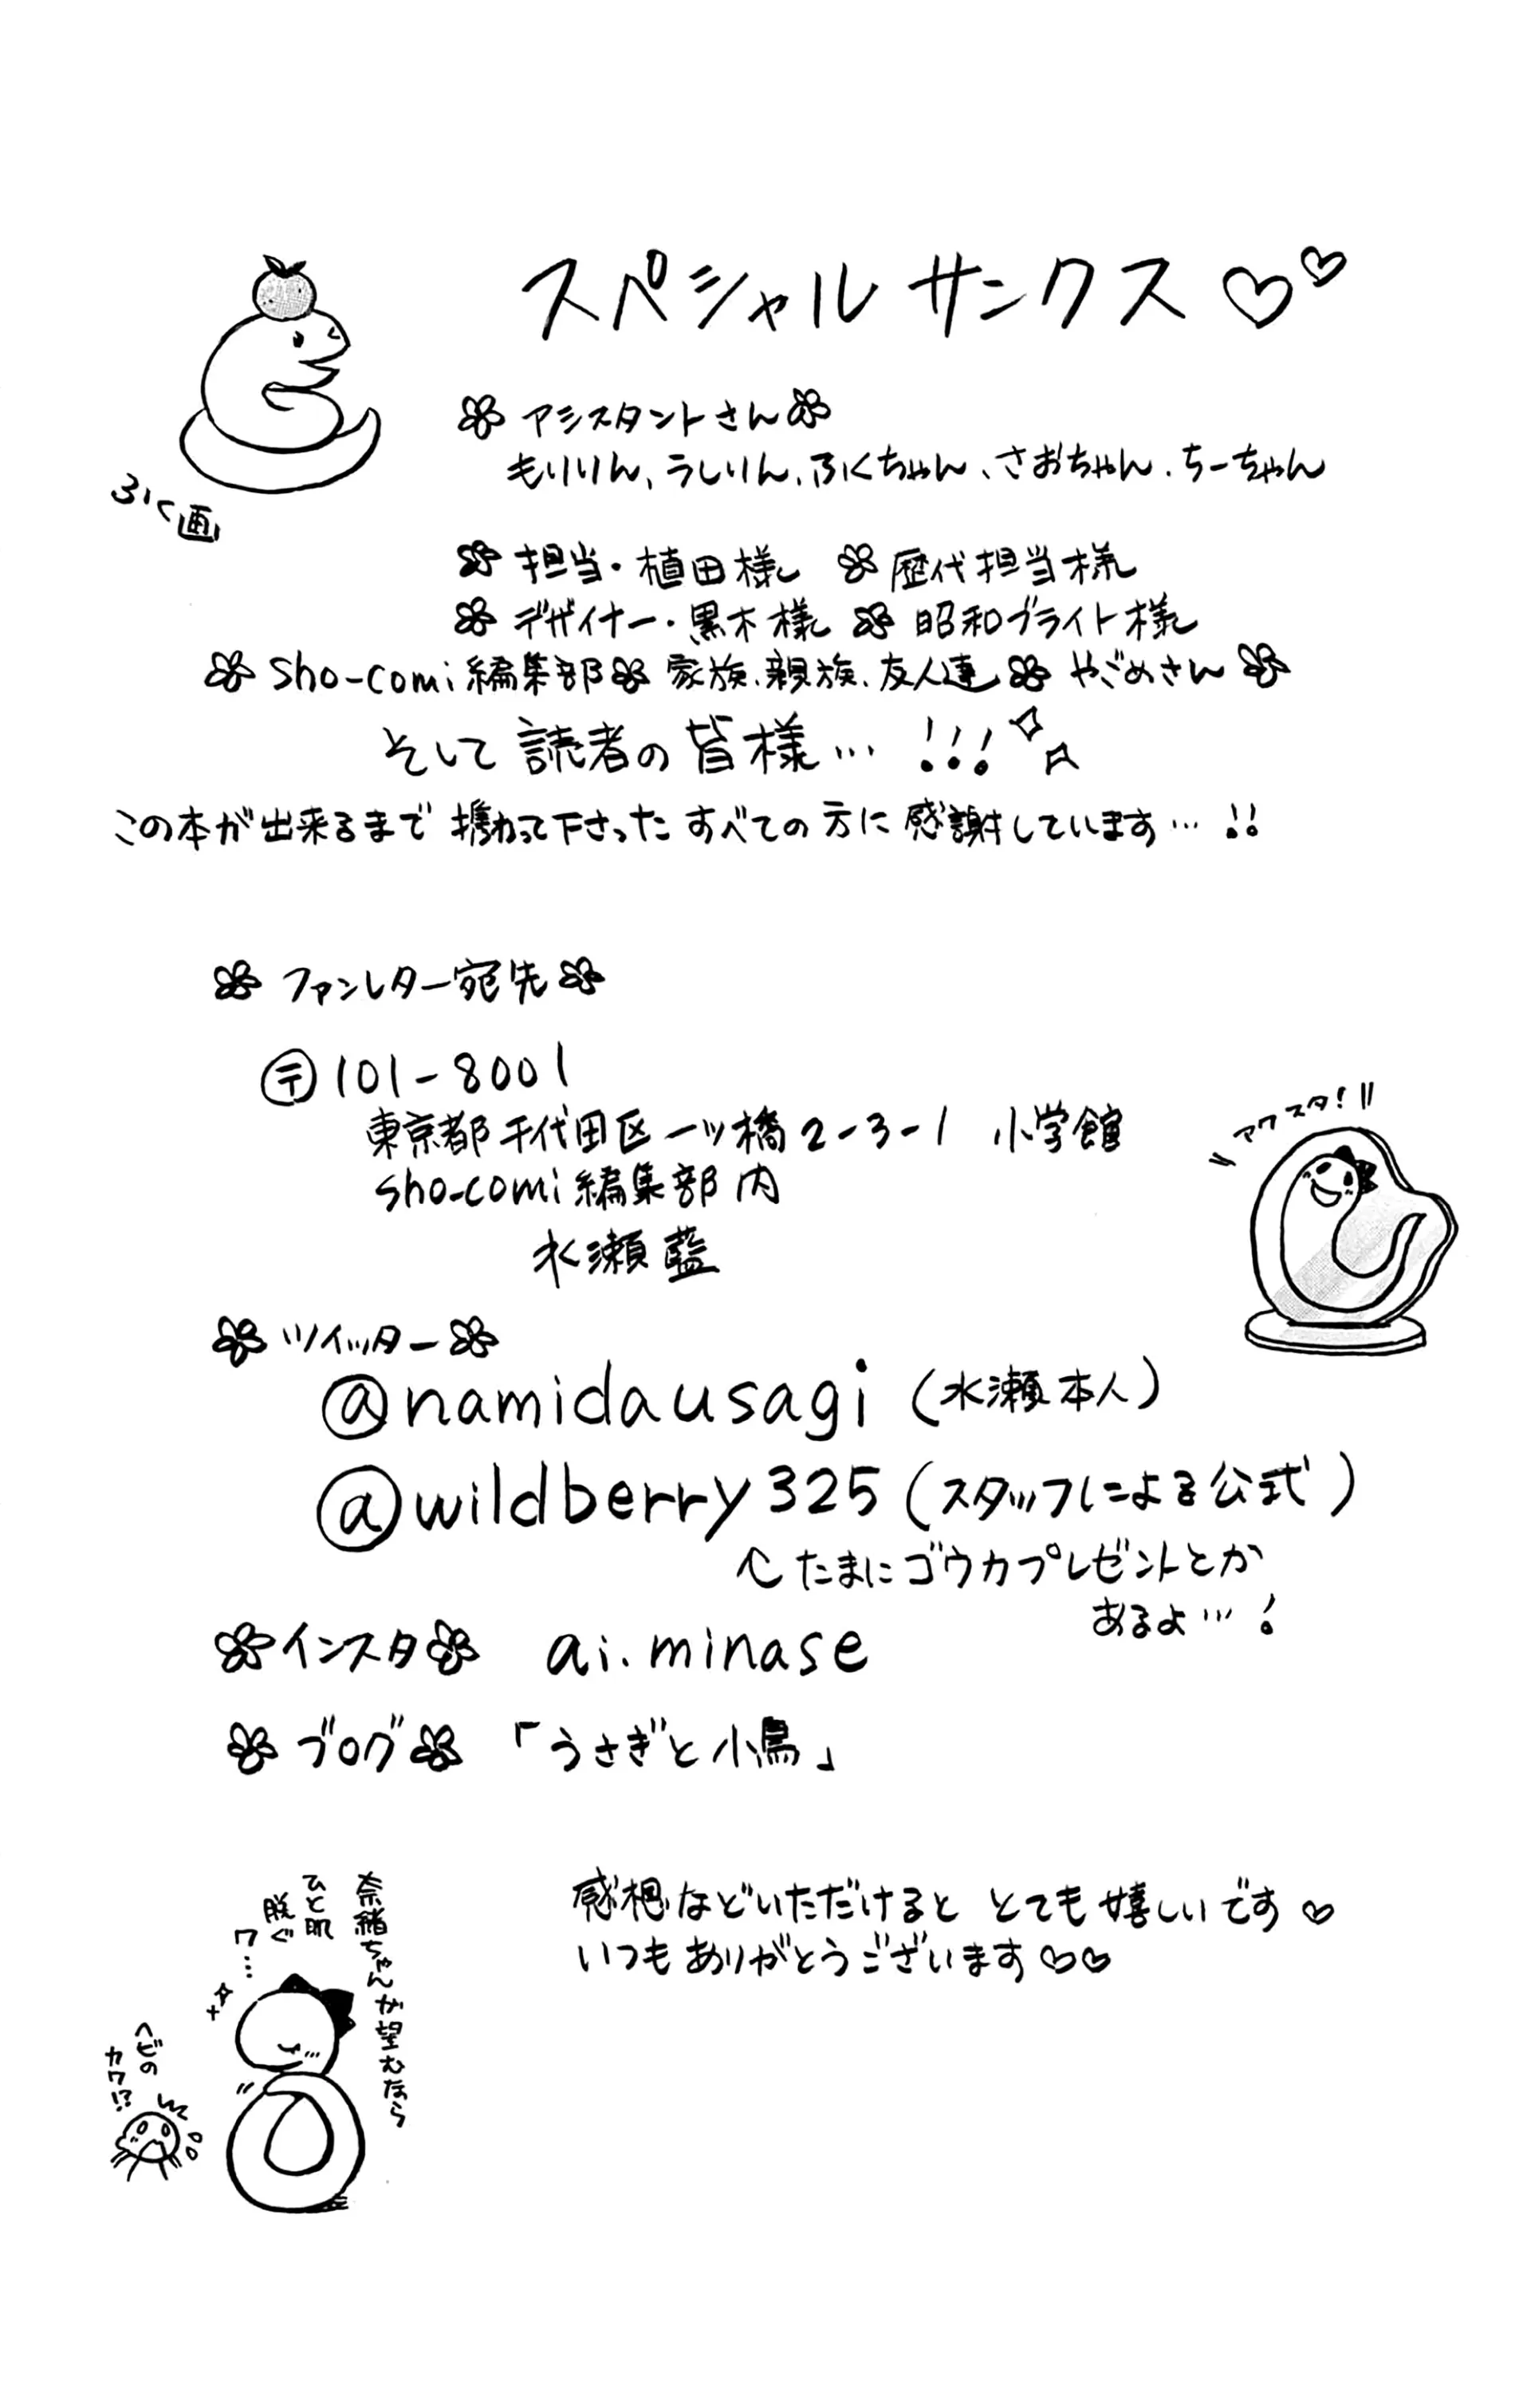 スペシャル サンクス♡♡
ふく画
アシスタントさん
もりりん、うしりん、ふくちゃん、さおちゃん、ちーちゃん
担当・植田様 歴代担当様
デザイナー・黒木様 昭和ブライト様
Sho-comi編集部 家族、親族、友人達 やごめさん
そして 読者の 皆様… !!!
この本が出来るまで 携わって下さった すべての 方に 感謝しています… !!
ファンレター宛先
〒101-8001
東京都千代田区一ツ橋2-3-1 小学館
sho-comi編集部内
水瀬藍
アクスタ!
ツイッター
@namidausagi (水瀬本人)
@wildberry325 (スタッフによる公式)
たまにゴウカプレゼントとか
あるよ…!
インスタ ai.minase
ブログ 「うさぎと小鳥」
感想などいただけると とても嬉しいです♡
いつもありがとうございます♡♡
奈緒ちゃんが望むなら
ひと肌
脱ぐ
ワ…
ヘビの
カワ!?